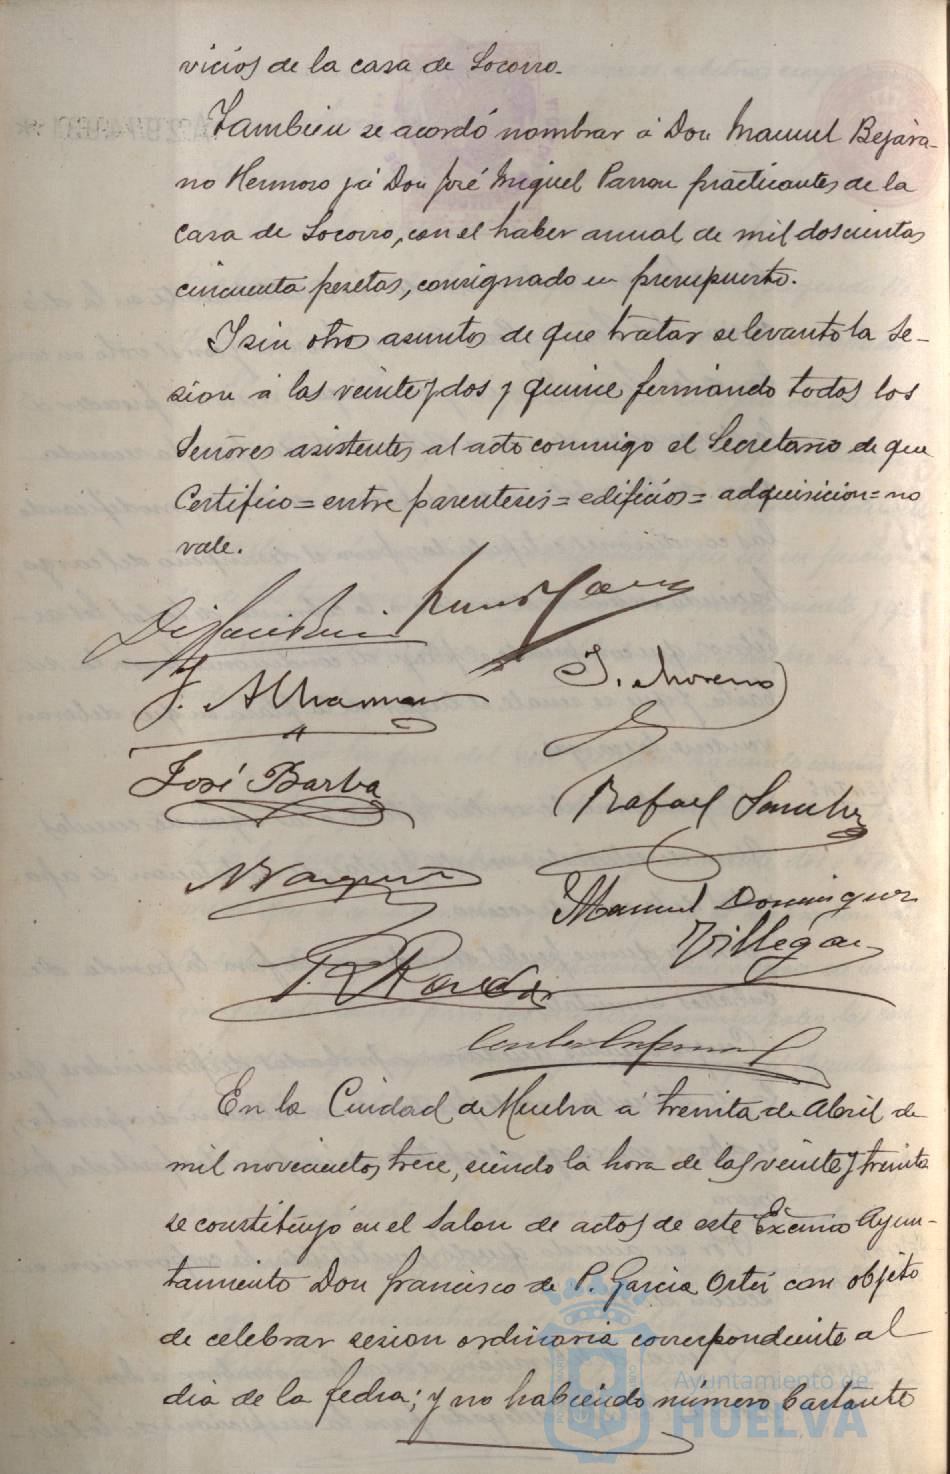 vicios de la casa de Socorro.
Tambien se acordó nombrar á Don Manuel Bejara-
no Hermoso y á Don José Miguel Parron practicantes de la
casa de Socorro, con el haber anual de mil doscientas
cincuenta pesetas, consignado en presupuesto.
Y sin otros asuntos de que tratar se levantó la Se-
sion á las veinte y dos y quince firmando todos los
Señores asistentes al acto conmigo el Secretario de que
Certifico = entre parentesis = edificios = adquisicion = no
vale.
J. Alhaman
J. Moreno
José Barba
Rafael Sanchez
N Vazquez
Manuel Dominguez
Villegas
En la Ciudad de Huelva á treinta de Abril de
mil novecientos trece, siendo la hora de las veinte y treinta
se constituyó en el Salon de actos de este Excmo Ayun-
tamiento Don Francisco de P. Garcia Ortiz con objeto
de celebrar sesion ordinaria correspondiente al
dia de la fecha; y no habiendo número bastante
Ayuntamiento de
HUELVA